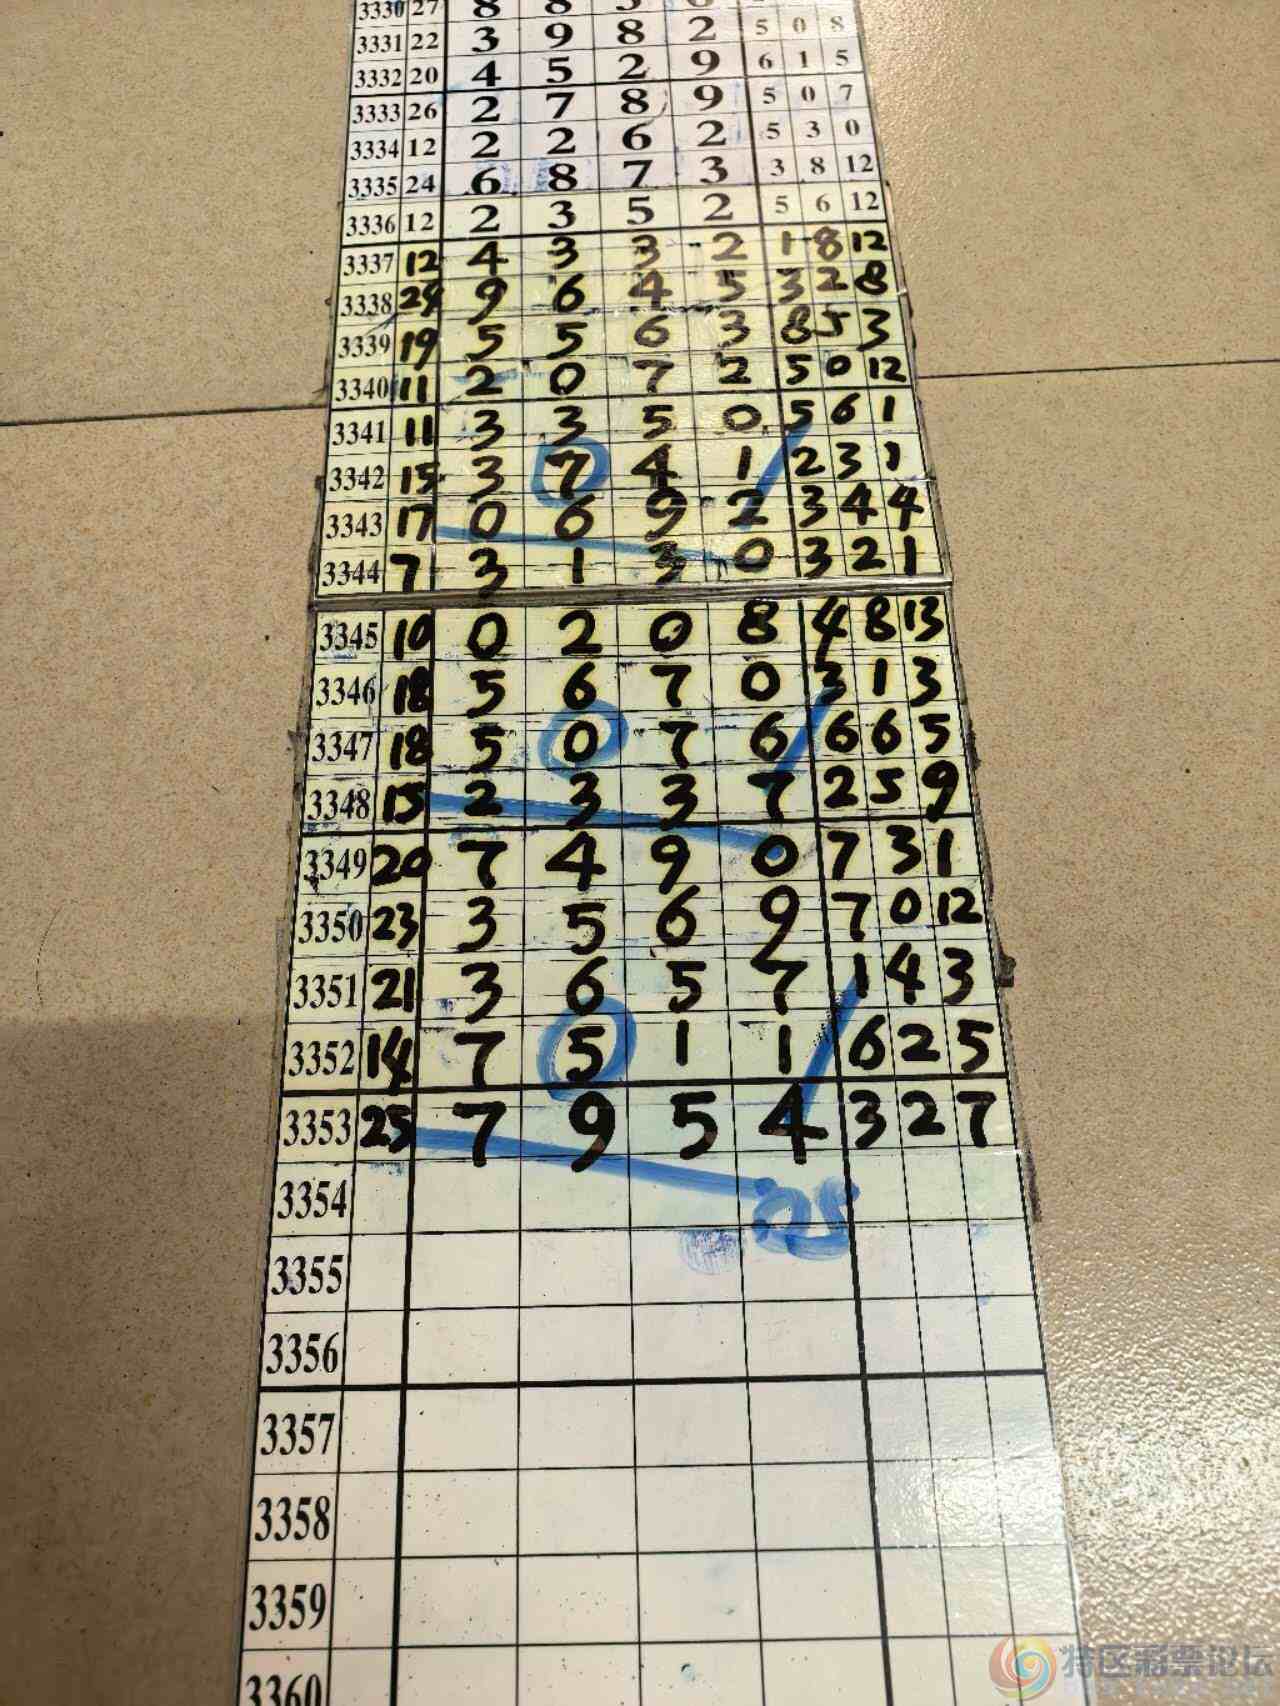 3330 27 8 8
3331 22 3 9 8 2 5 0 8
3332 20 4 5 2 9 6 1 5
3333 26 2 7 8 9 5 0 7
3334 12 2 2 6 2 5 3 0
3335 24 6 8 7 3 3 8 12
3336 12 2 3 5 2 5 6 12
3337 12 4 3 3 2 1 8 12
3338 24 9 6 4 5 3 2 8
3339 19 5 5 6 3 8 5 3
3340 11 2 0 7 2 5 0 12
3341 11 3 3 5 0 5 6 1
3342 15 3 7 4 1 2 3 1
3343 17 0 6 9 2 3 4 4
3344 7 3 1 3 0 3 2 1
3345 10 0 2 0 8 4 8 13
3346 18 5 6 7 0 3 1 3
3347 18 5 0 7 6 6 6 5
3348 15 2 3 3 7 2 5 9
3349 20 7 4 9 0 7 3 1
3350 23 3 5 6 9 7 0 12
3351 21 3 6 5 7 1 4 3
3352 14 7 5 1 1 6 2 5
3353 25 7 9 5 4 3 2 7
3354 05
3355
3356
3357
3358
3359
3360
特区彩票论坛